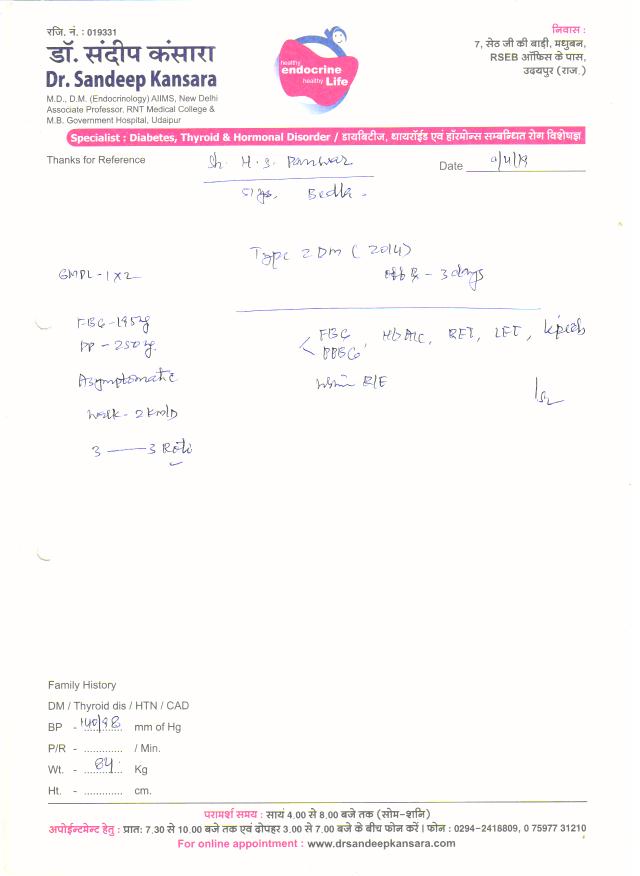 रजि. नं. : 019331
डॉ. संदीप कंसारा
Dr. Sandeep Kansara
M.D., D.M. (Endocrinology) AIIMS, New Delhi
Associate Professor. RNT Medical College &
M.B. Government Hospital, Udaipur
healthy
endocrine
healthy Life
निवास :
7, सेठ जी की बाड़ी, मधुबन,
RSEB ऑफिस के पास,
उदयपुर (राज.)
Specialist : Diabetes, Thyroid & Hormonal Disorder / डायबिटीज, थायरॉईड एवं हॉरमोन्स सम्बन्धित रोग विशेषज्ञ
Thanks for Reference Sh. H. S. Panwar Date
Bedla
Type 2 DM (2014)
GMPL-1 X 2 off Rx - 3 days
FBG
PP - 250
FBG, HbA1C, RFT, LFT, Lipids
PPBG
Asymptomatic
Urine R/E
Walk - 2 KM/D
3 3 Roti
Family History
DM / Thyroid dis / HTN / CAD
BP - 140/98 mm of Hg
P/R - ............ / Min.
Wt. - 84 Kg
Ht. - ............ cm.
परामर्श समय : सायं 4.00 से 8.00 बजे तक (सोम-शनि)
अपोईन्टमेन्ट हेतु : प्रातः 7.30 से 10.00 बजे तक एवं दोपहर 3.00 से 7.00 बजे के बीच फोन करें । फोन : 0294-2418809, 0 75977 31210
For online appointment : www.drsandeepkansara.com